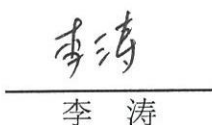 李涛
李 涛